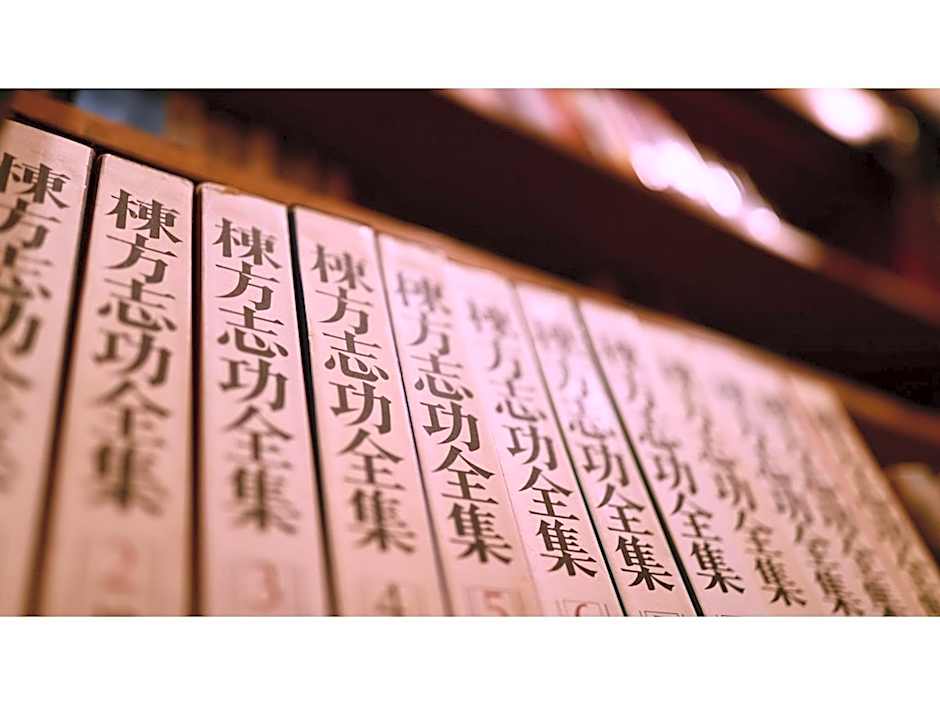 棟方志功全集
棟方志功全集
2
棟方志功全集
3
棟方志功全集
4
棟方志功全集
5
棟方志功全集
6
棟方志功全集
棟方志功全集
棟方志功全集
棟方志功全集